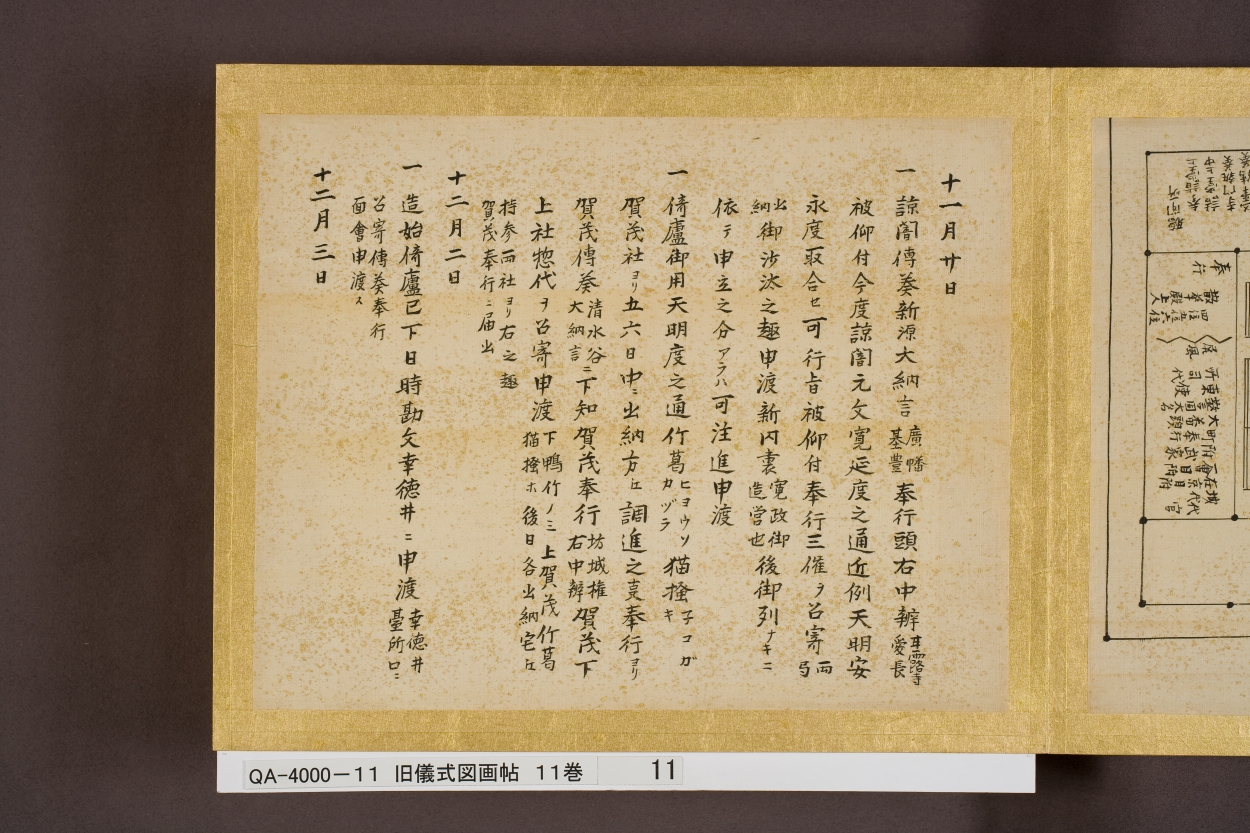 十一月廿日
一 諒闇傳奏新源大納言 廣幡基豊 奉行頭右中辨 甘露寺愛長
被仰付今度諒闇元文寛延度之通近例天明安
永度取合セ可行旨被仰付奉行三催ヲ召寄 両局
出納 御沙汰之趣申渡新内裏 寛政御造営也 後御列ナキニ
依テ申立之分アラハ可注進申渡
一 倚廬御用天明度之通竹葛 ヒヨウソカヅラ 猫掻 子コガキ
賀茂社ヨリ五六日中ニ出納方江調進之㕝奉行ヨリ
賀茂傳奏 清水谷大納言ニ 下知賀茂奉行 坊城権右中辨 賀茂下
上社惣代ヲ召寄申渡 下鴨竹ノミ上賀茂竹葛猫掻ホ後日各出納宅江
持参両社ヨリ右之趣賀茂奉行ニ届出
十二月二日
一 造始倚廬已下日時勘文幸徳井ニ申渡 幸徳井臺所口ニ
召寄傳奏奉行面會申渡ス
十二月三日
奉行
散華殿上人
四位五位六位
屏風
所司代
QA-4000-11 旧儀式図画帖 11巻 11